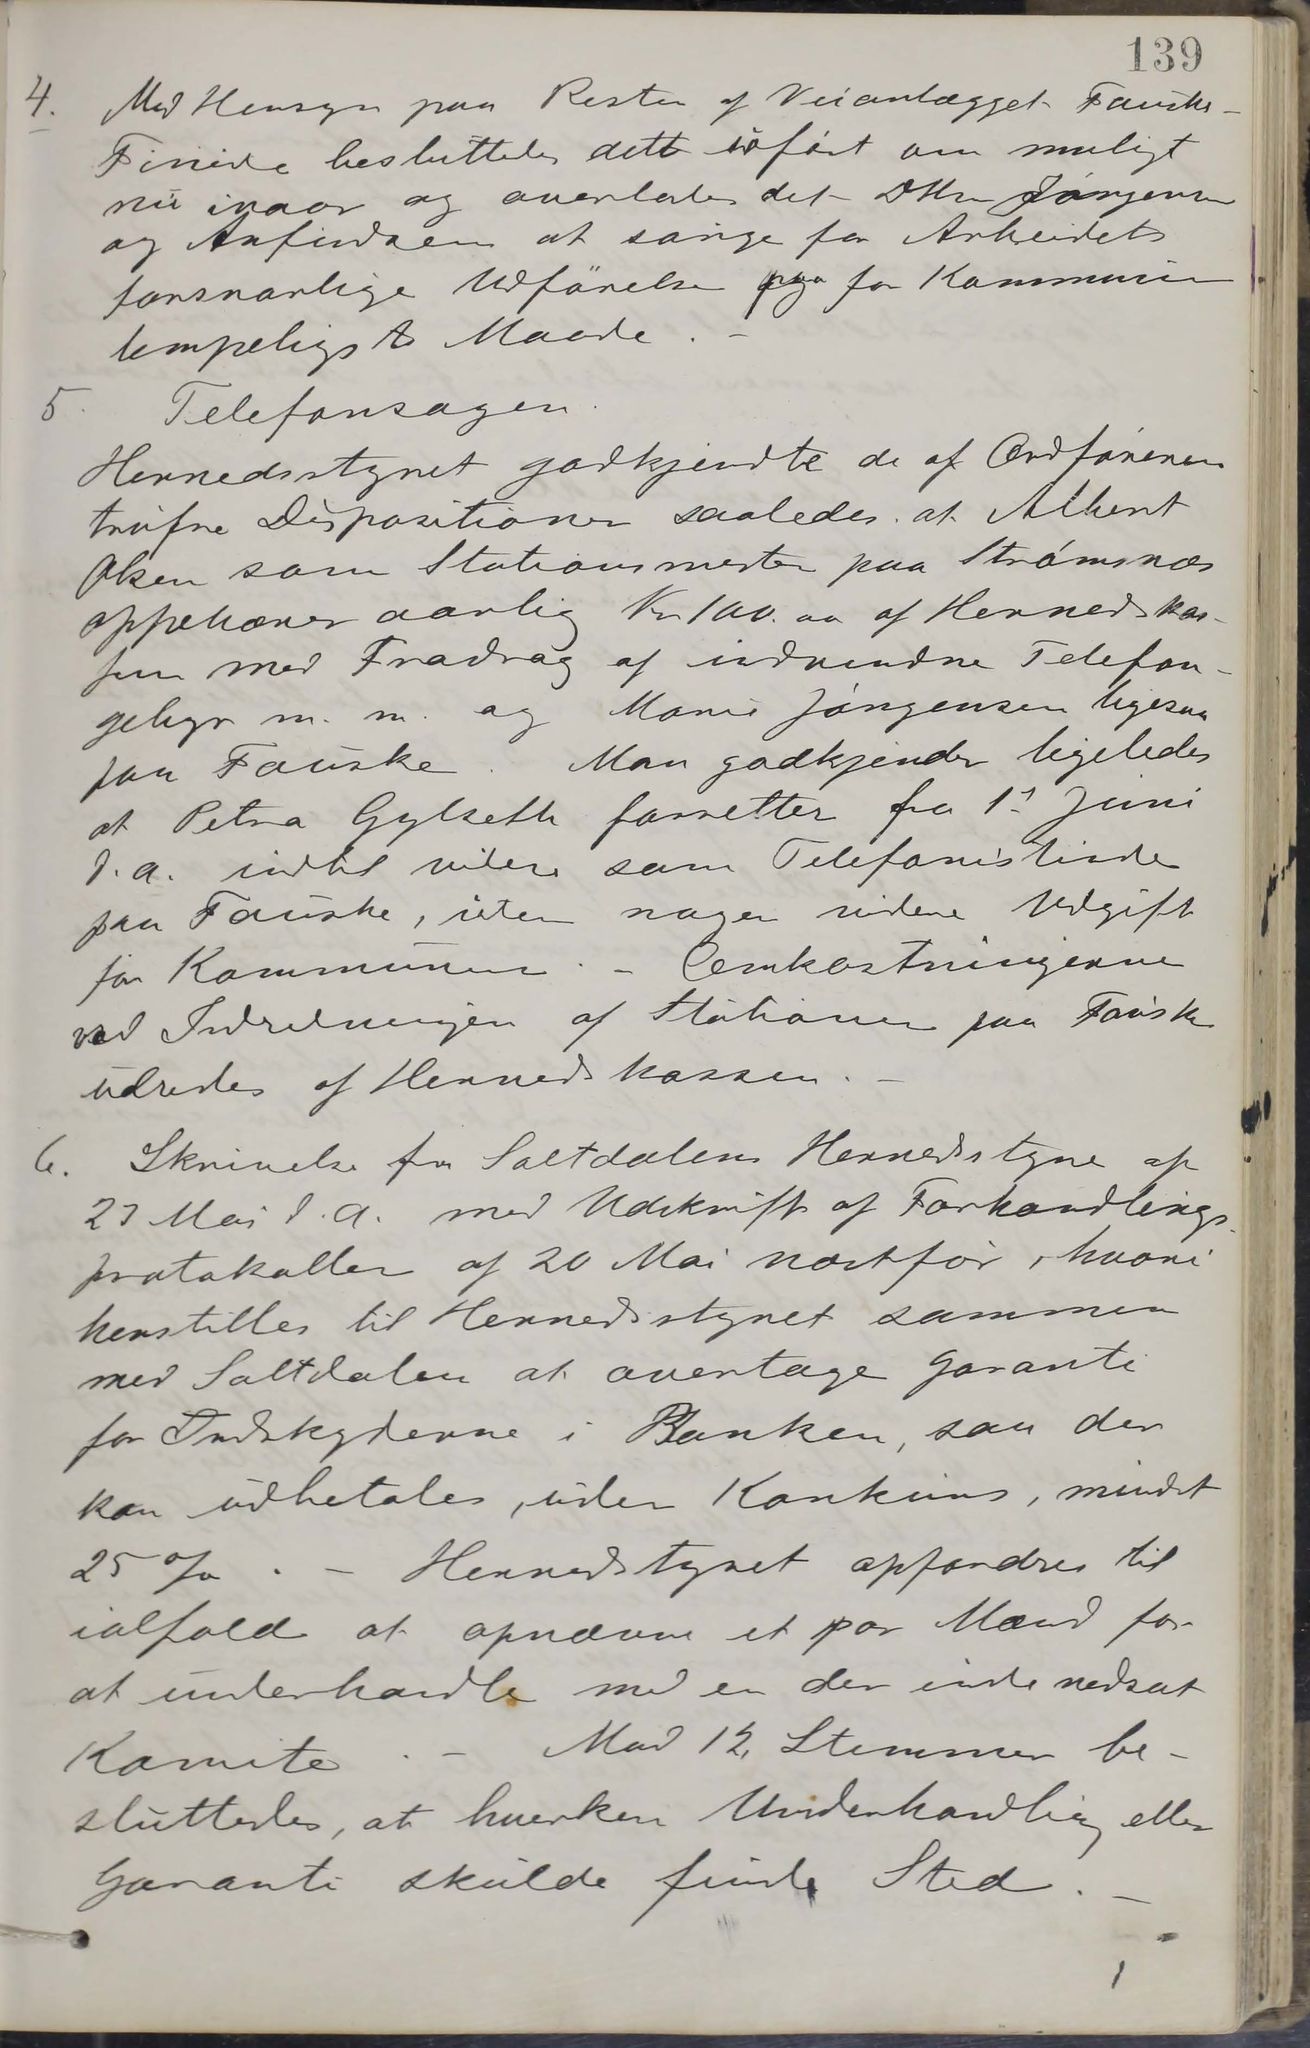 139
4. Med Hensyn paa Resten af Veianlægget Fauske-
Fineide besluttedes dett udført om muligt
nu ivaar og overlodes det DHrr Jörgensen
og Anfindsen at sörge for Arbeidets
forsvarlige Udförelse paa for Kommunen
lempeligste Maade. -
5. Telefonsagen.
Herredsstyret godkjendte de af Ordföreren
trufne Dispositioner saaledes at Albert
Olsen som Stationsmester paa Strömsnæs
oppebærer aarlig Kr 100.00 af Herredskas-
sen med Fradrag af indvundne Telefon-
gebyr m. m. og Marie Jörgensen ligesaa
paa Fauske. Man godkjender ligeledes
at Petra Gylseth forretter fra 1ste Juni
d. a. indtil videre som Telefonistinde
paa Fauske, uten nogen videre Udgift
for Kommunen. - Omkostningerne
ved Indredningen af Stationen paa Fauske
udredes af Herredskassen. -
6. Skrivelse fra Saltdalens Herredsstyre af
23 Mai d. a. med Udskrift af Forhandlings-
protokollen af 20 Mai næstför, hvori
henstilles til Herredsstyret sammen
med Saltdalen at overtage Garanti
for Indskyderne i Banken, saa der
kan udbetales, uden Konkurs, mindst
25 %. - Herredstyret opfordres til
ialfald at opnævne et par Mænd for
at underhandle med en der inde nedsat
Komite. - Med 12 Stemmer be-
sluttedes, at hverken Underhandling eller
Garanti skulde finde Sted. -